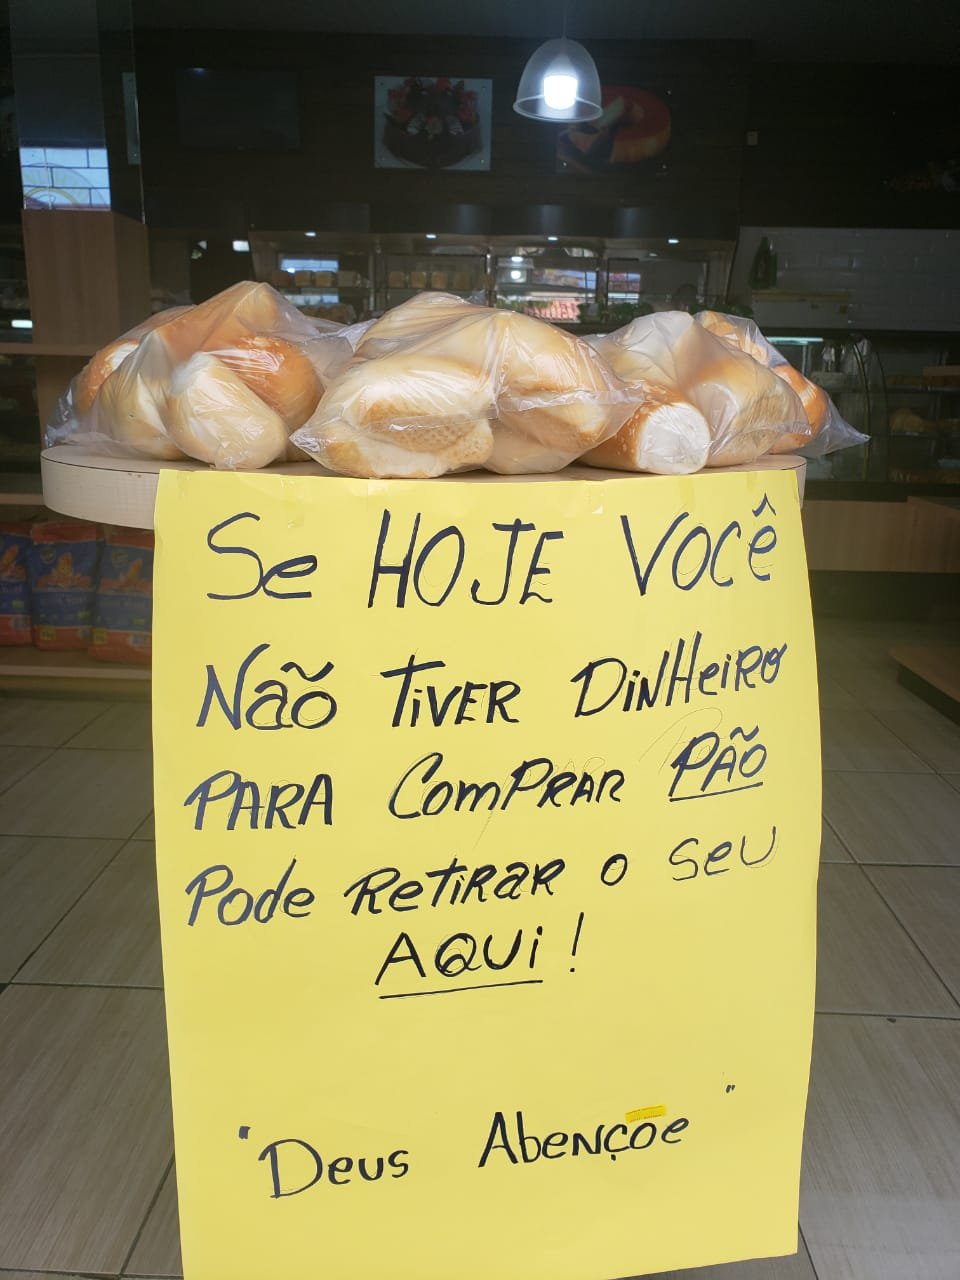 Se HOJE VOCÊ
Não TiVER DiNHeiRO
PARA ComPRAR PÃO
Pode ReTiRAR o seu
AQUi!
"Deus Abençoe"